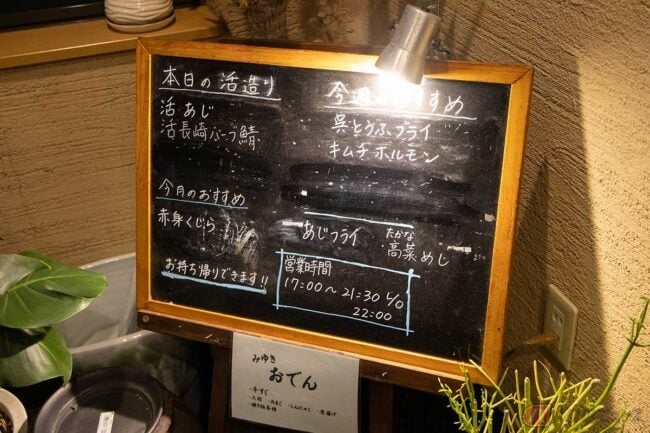 本日の活造り
活あじ
活長崎ハーブ鯖
今月のおすすめ
赤身くじら
お持ち帰りできます!!
今週のおすすめ
呉とうふフライ
キムチホルモン
あじフライ
たかな
高菜めし
営業時間
17:00〜21:30 L/O
22:00
みゆき
おでん
・牛すじ
・大根 ・たまご ・こんにゃく ・厚揚げ